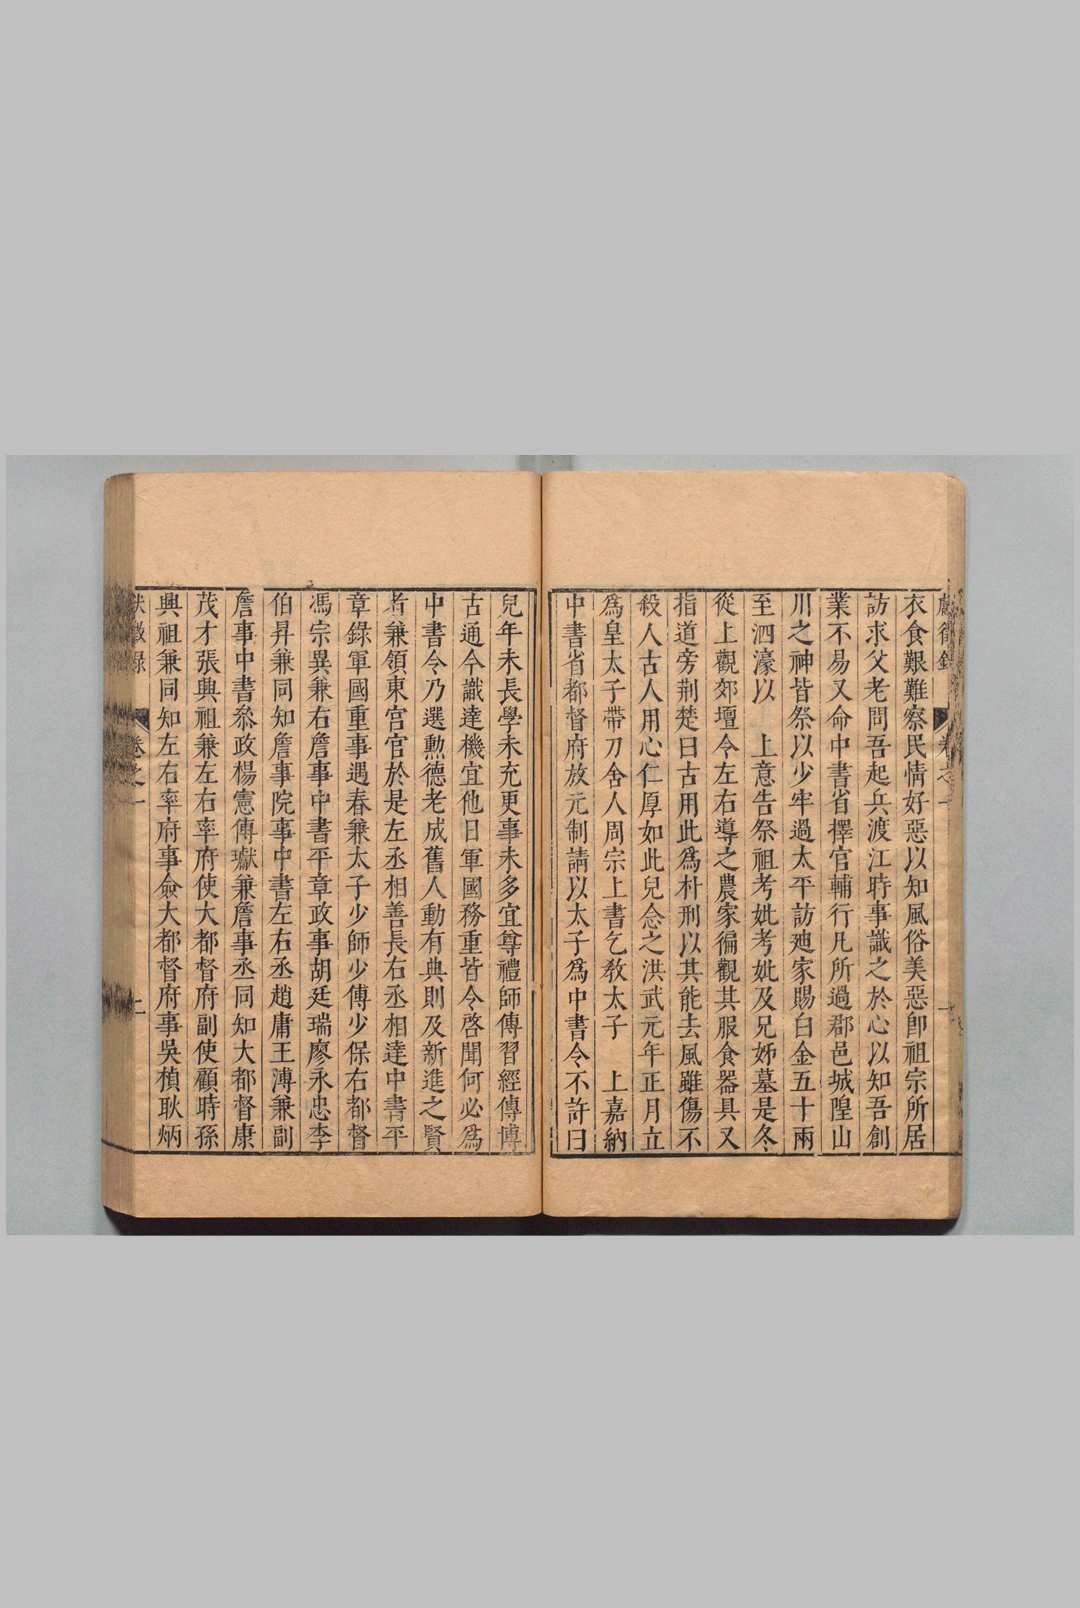 獻徵錄 卷之一
衣食艱難察民情好惡以知風俗美惡卽祖宗所居
訪求父老問吾起兵渡江時事識之於心以知吾創
業不易又命中書省擇官輔行凡所過郡邑城隍山
川之神皆祭以少牢過太平訪廸家賜白金五十兩
至泗濠以 上意告祭祖考妣考妣及兄姊墓是冬
從上觀郊壇令左右導之農家徧觀其服食器具又
指道旁荆楚曰古用此爲朴刑以其能去風雖傷不
殺人古人用心仁厚如此兒念之洪武元年正月立
爲皇太子帶刀舍人周宗上書乞教太子 上嘉納
中書省都督府放元制請以太子爲中書令不許曰
兒年未長學未充更事未多宜尊禮師傅習經傳博
古通今識達機宜他日軍國務重皆令啓聞何必爲
中書令乃選勲德老成舊人動有典則及新進之賢
者兼領東宮官於是左丞相善長右丞相達中書平
章錄軍國重事遇春兼太子少師少傅少保右都督
馮宗異兼右詹事中書平章政事胡廷瑞廖永忠李
伯昇兼同知詹事院事中書左右丞趙庸王溥兼副
詹事中書叅政楊憲傅瓛兼詹事丞同知大都督康
茂才張興祖兼左右率府使大都督府副使顧時孫
興祖兼同知左右率府事僉大都督府事吳楨耿炳
獻徵錄 卷之一